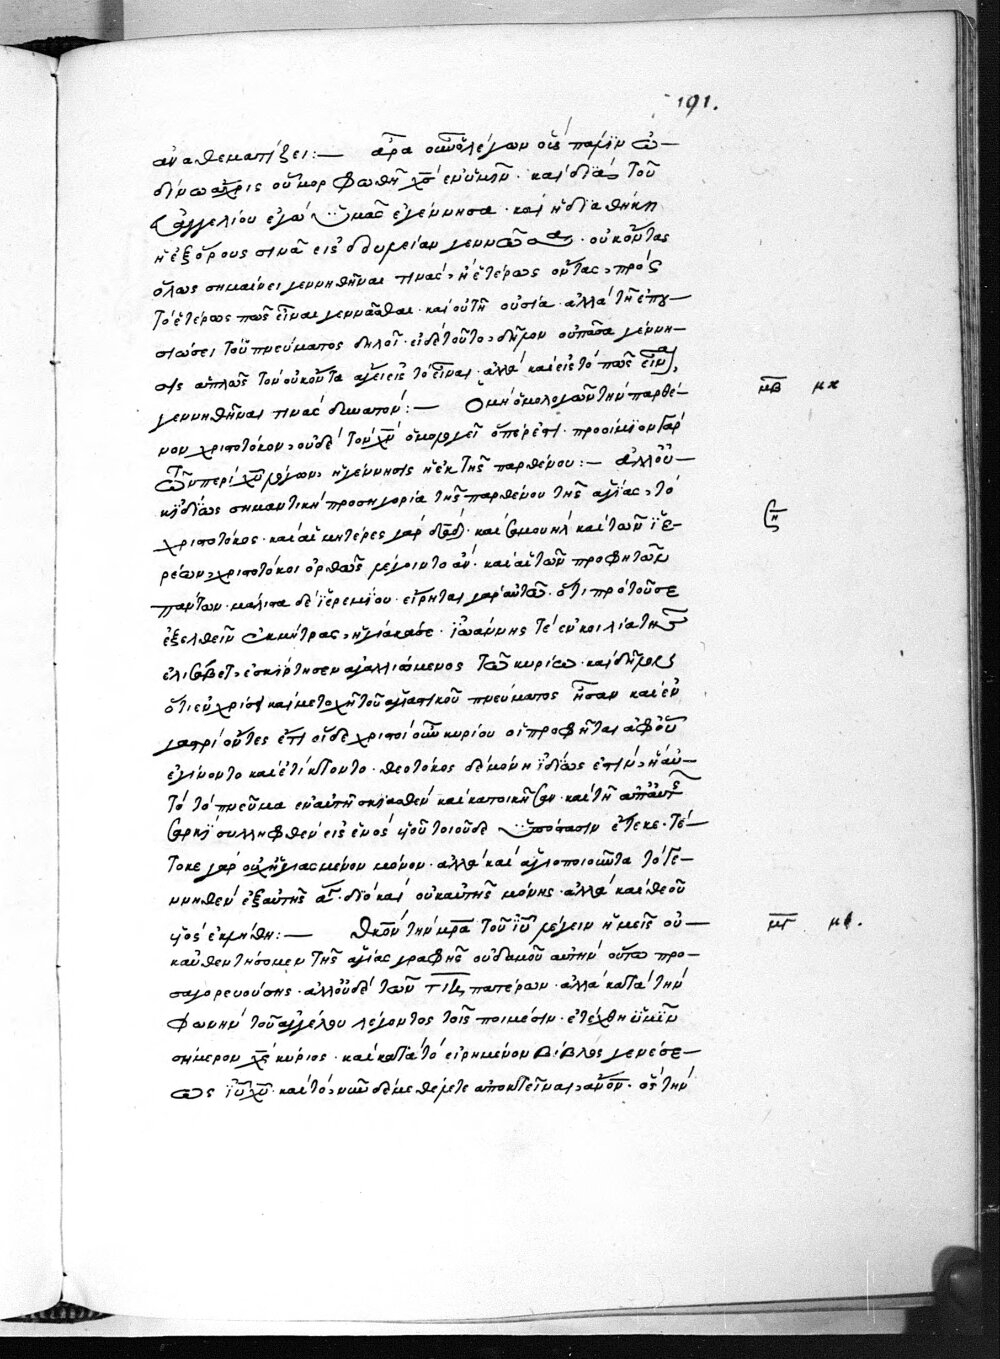 191.
ἀναθεματίζει:— ἆρα οὖν ὁ λέγων οὓς πάλιν ὠ-
δίνω ἄχρις οὗ μορφωθῇ χς ἐν ὑμῖν· καὶ διὰ τοῦ
εὐαγγελίου ἐγὼ ὑμᾶς ἐγέννησα· καὶ ἡ διαθήκη
ἡ ἐξ ὄρους σινᾶ εἰς δουλείαν γεννῶσα· οὐκ ὄντας
ὅλως σημαίνει γεννηθῆναι τινάς, ἢ ἑτέρως ὄντας, πρὸς
τὸ ἑτέρως πως εἶναι γεννᾶσθαι· καὶ οὐ τῇ οὐσίᾳ· ἀλλὰ τῇ ἐπου-
σιώσει τοῦ πνεύματος δηλοῖ· εἰ δὲ τοῦτο, δῆλον οὐ πᾶσα γέννη-
σις ἁπλῶς τὸν οὐκ ὄντα ἄγει εἰς τὸ εἶναι· ἀλλὰ καὶ εἰς τὸ πῶς εἶναι,
γεννηθῆναι τινὰς δυνατόν:— Ὁ μὴ ὁμολογῶν τὴν παρθέ-
μβ μχ
νον χριστοτόκον, οὐδὲ τὸν χν ὁμολογεῖ ὅπερ ἐστί· προοίμιον γὰρ
τῶν περὶ χυ λόγων, ἡ γέννησις ἡ ἐκ τῆς παρθένου:— ἀλλ' οὐ-
κ ἰδίως σημαντικὴ προσηγορία τῆς παρθένου τῆς ἁγίας, τὸ
χριστοτόκος· καὶ αἱ μητέρες γὰρ δαδ· καὶ σαμουὴλ καὶ τῶν ἱε-
ρέων, χριστοτόκοι ὀρθῶς λέγοιντο ἄν· καὶ αἱ τῶν προφητῶν
πάντων· μάλιστα δὲ ἱερεμίου· εἴρηται γὰρ αὐτῷ· ὅτι πρὸ τοῦ σε
ἐξελθεῖν ἐκ μήτρας, ἡγίακά σε· ἰωάννης τε ἐν κοιλίᾳ τῆς
ἐλισάβετ, ἐσκίρτησεν ἀγαλλιώμενος τῷ κυρίῳ· καὶ δῆλον
ὅτι ἐν χριστῷ καὶ μετοχῇ τοῦ ἁγιαστικοῦ πνεύματος ἦσαν καὶ ἐν
γαστρὶ ὄντες ἔτι οἵδε χριστοὶ οὖν κυρίου οἱ προφῆται ἀφ' οὗ
ἐγίνοντο καὶ ἐτίκτοντο· θεοτόκος δὲ μόνη ἰδίως ἐστὶν, ἡ αὐ-
τὸ τὸ πνεῦμα ἐν αὐτῇ σκιασθὲν καὶ κατοικῆσαν· καὶ τῇ ἀπ' αὐτῆς
σαρκὶ συλληφθὲν εἰς ἑνὸς υἱοῦ τοιοῦδε ὑπόστασιν ἔτεκε· τέ-
τοκε γὰρ οὐχ ἡγιασμένον μόνον· ἀλλὰ καὶ ἁγιοποιοῦντα τὸ γε-
ννηθὲν ἐξ αὐτῆς διὸ καὶ οὐκ αὐτῆς μόνης· ἀλλὰ καὶ θεοῦ
υἱὸς ἐκλήθη:— θκον τὴν μρα τοῦ ιυ λέγειν ἡμεῖς οὐ-
μγ
κ αὐθεντήσομεν τῆς ἁγίας γραφῆς οὐδαμοῦ αὐτὴν οὕτω προ-
σαγορευούσης· ἀλλ' οὐδὲ τῶν τιη πατέρων· ἀλλὰ κατὰ τὴν
φωνὴν τοῦ ἀγγέλου λέγοντος τοῖς ποιμέσιν· ἐτέχθη ὑμῖν
σήμερον χς κύριος· καὶ κατὰ τὸ εἰρημένον βίβλος γενέσε-
ως ιυ χυ· καὶ τὸ, νῦν δέ με θέλετε ἀποκτεῖναι, ανον· ὃς τὴν